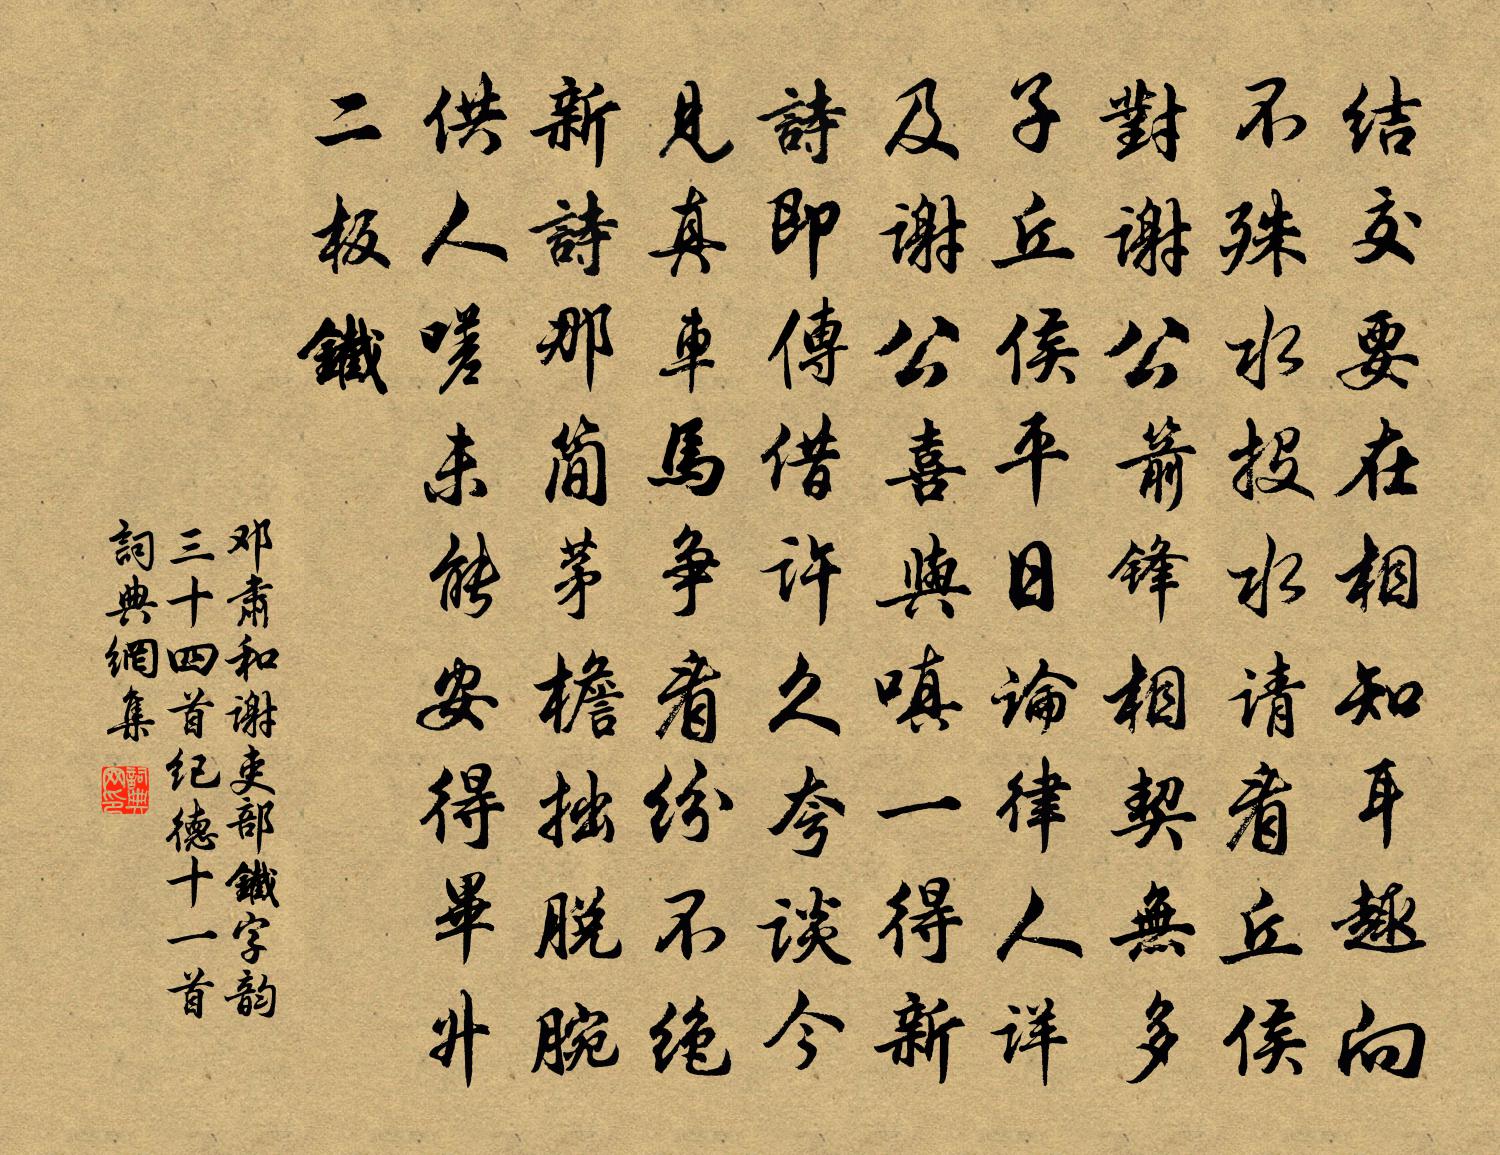 结交要在相知耳趣向
不殊水投水请看丘侯
對谢公箭锋相契無多
子丘侯平日論律人详
及谢公喜與嗔一得新
詩即傳借许久夸谈今
見真車馬争看纷不绝
新詩那简茅檐拙脱腕
供人嗟未能安得畢升
二板鐵
邓肃和谢吏部鐵字韵
三十四首纪德十一首
詞典網集
詞典网印